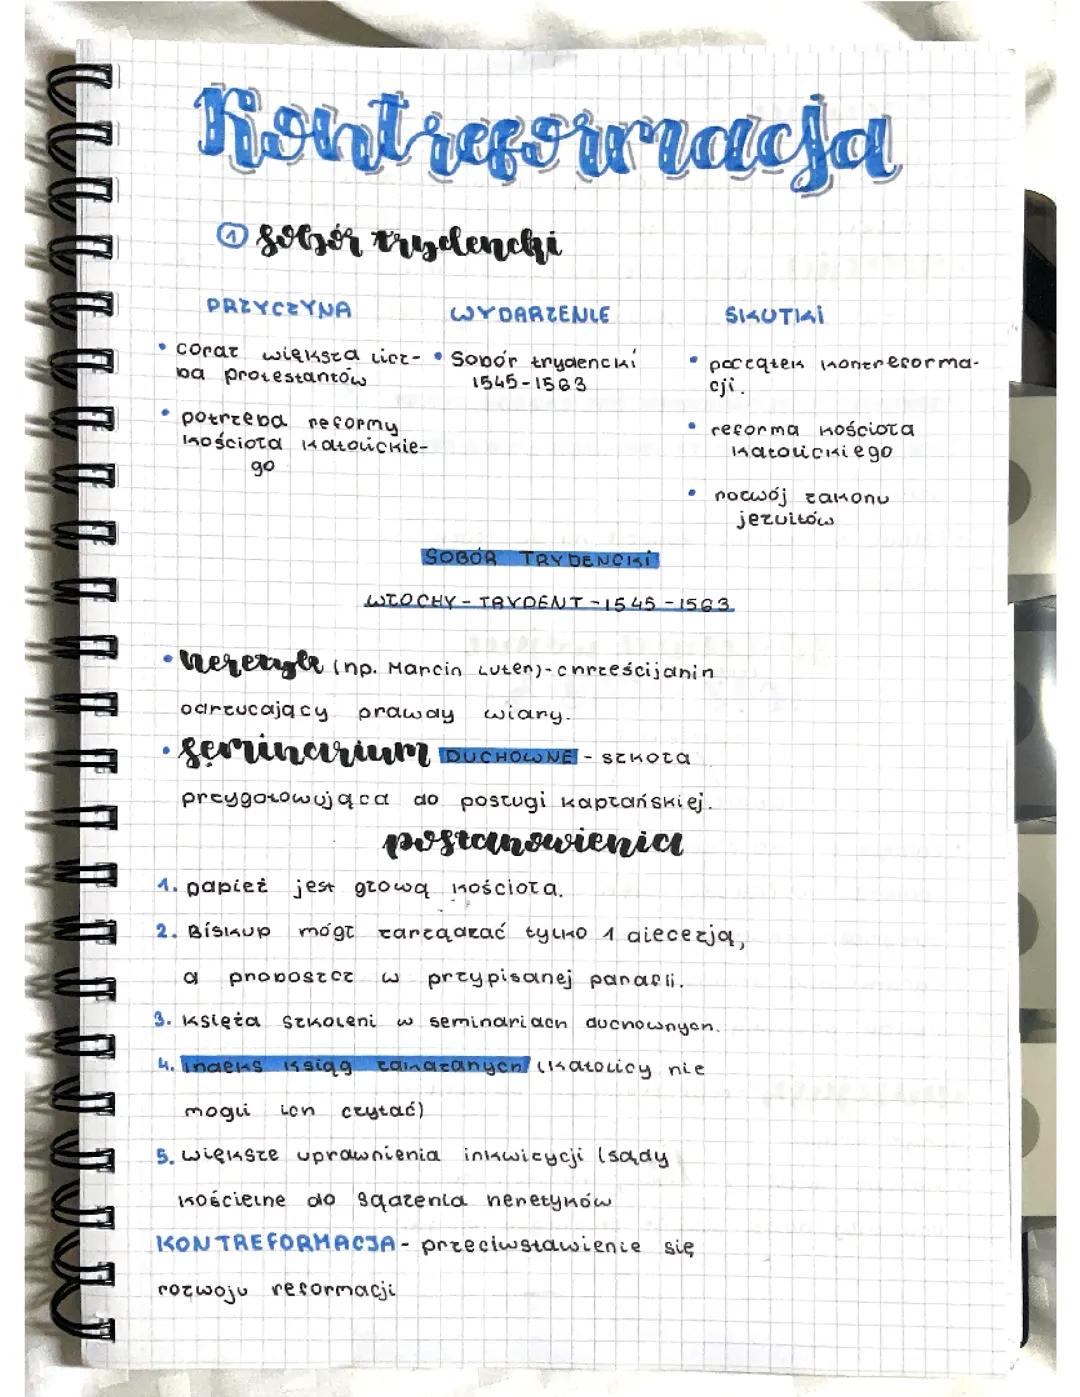 Kontreformacja
1 sobór trydencki
PRZYCZYNA WYDARZENIE SKUTKI
• coraz większa licz-
ba protestantów
• potrzeba reformy
kościoła katolickie-
go
• Sobór trydencki
1545-1563
• początek kontreforma-
cji.
• reforma kościoła
katolickiego
• rozwój zakonu
jezuitów
SOBÓR TRYDENCKI
WŁOCHY - TRYDENT - 1545 - 1563
• heretyk (np. Marcin Luter) - chrześcijanin
odrzucający prawdy wiary.
• seminarium DUCHOWNE - szkoła
przygotowująca do posługi kapłańskiej.
postanowienia
1. papież jest głową kościoła.
2. Biskup mógł zarządzać tylko 1 diecezją,
a proboszcz w przypisanej parafii.
3. księża szkoleni w seminariach duchownych.
4. indeks ksiąg zakazanych (katolicy nie
mogli ich czytać)
5. większe uprawnienia inkwizycji (sądy
kościelne do sądzenia heretyków
KONTREFORMACJA - przeciwstawienie się
rozwoju reformacji